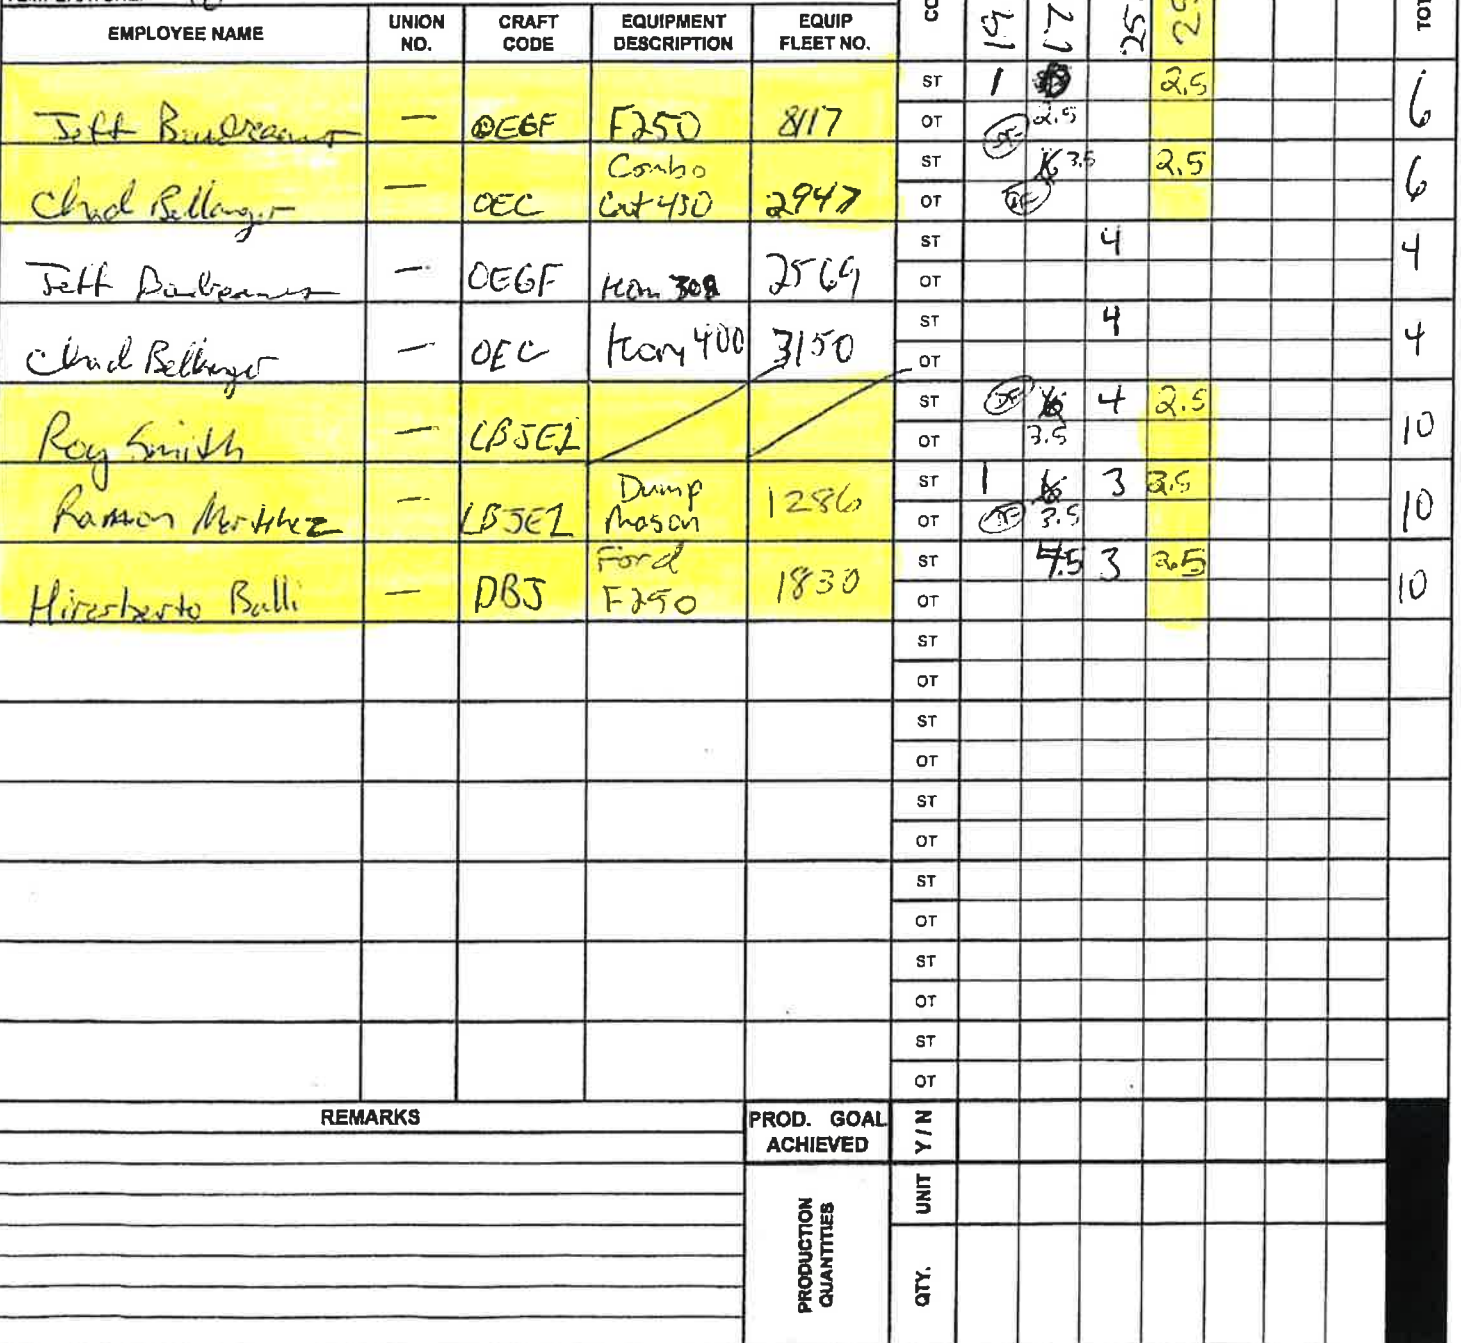 EMPLOYEE NAME UNION NO. CRAFT CODE EQUIPMENT DESCRIPTION EQUIP FLEET NO. CO 19 17 25 25 TOT
Jeff — OEGF F250 8117 ST 1 2.5 6
OT 2.5
Chad Bellanger — OEC Combo Cat 430 2947 ST 3.5 2.5 6
OT
Jeff — OEGF Kom 308 2569 ST 4 4
OT
Chad Bellanger — OEC 400 3150 ST 4 4
OT
Roy Smith — LBJE1 ST 4 2.5 10
OT 3.5
Ramon Martinez — LBJE1 Dump Mason 1286 ST 1 3 2.5 10
OT 3.5
Balli — DBJ Ford F250 1830 ST 4.5 3 2.5 10
OT
ST
OT
ST
OT
ST
OT
ST
OT
ST
OT
ST
OT
REMARKS PROD. GOAL ACHIEVED Y / N
PRODUCTION QUANTITIES UNIT
QTY.